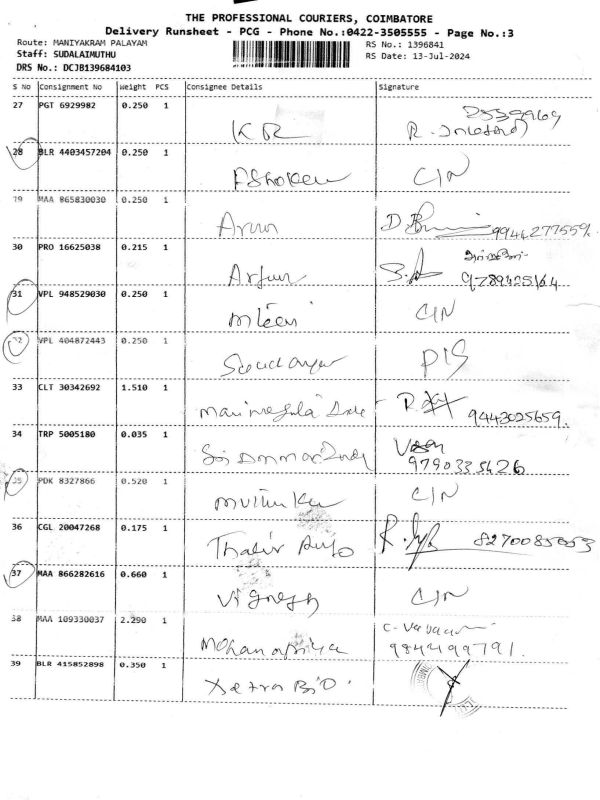 THE PROFESSIONAL COURIERS, COIMBATORE
Delivery Runsheet - PCG - Phone No.:0422-3505555 - Page No.:3
Route: MANIYAKRAM PALAYAM RS No.: 1396841
Staff: SUDALAIMUTHU RS Date: 13-Jul-2024
DRS No.: DCJB139684103
S No Consignment No Weight PCS Consignee Details Signature
27 PGT 6929982 0.250 1
KR R.
28 BLR 4403457204 0.250 1
Ashoken C/N
29 MAA 865830030 0.250 1
Arun D. 9944277559
30 PRO 16625038 0.215 1
Arjun 9789425164
31 VPL 948529030 0.250 1
C/N
32 VPL 404872443 0.250 1
P/S
33 CLT 30342692 1.510 1
9443025659.
34 TRP 5005180 0.035 1
Sri
9790335426
35 PDK 8327866 0.520 1
Muthu C/N
36 CGL 20047268 0.175 1
Thalir Auto 8270085053
37 MAA 866282616 0.660 1
Vignesh C/N
38 MAA 109330037 2.290 1
C.
Mohanapriya 9844499791.
39 BLR 415852898 0.350 1